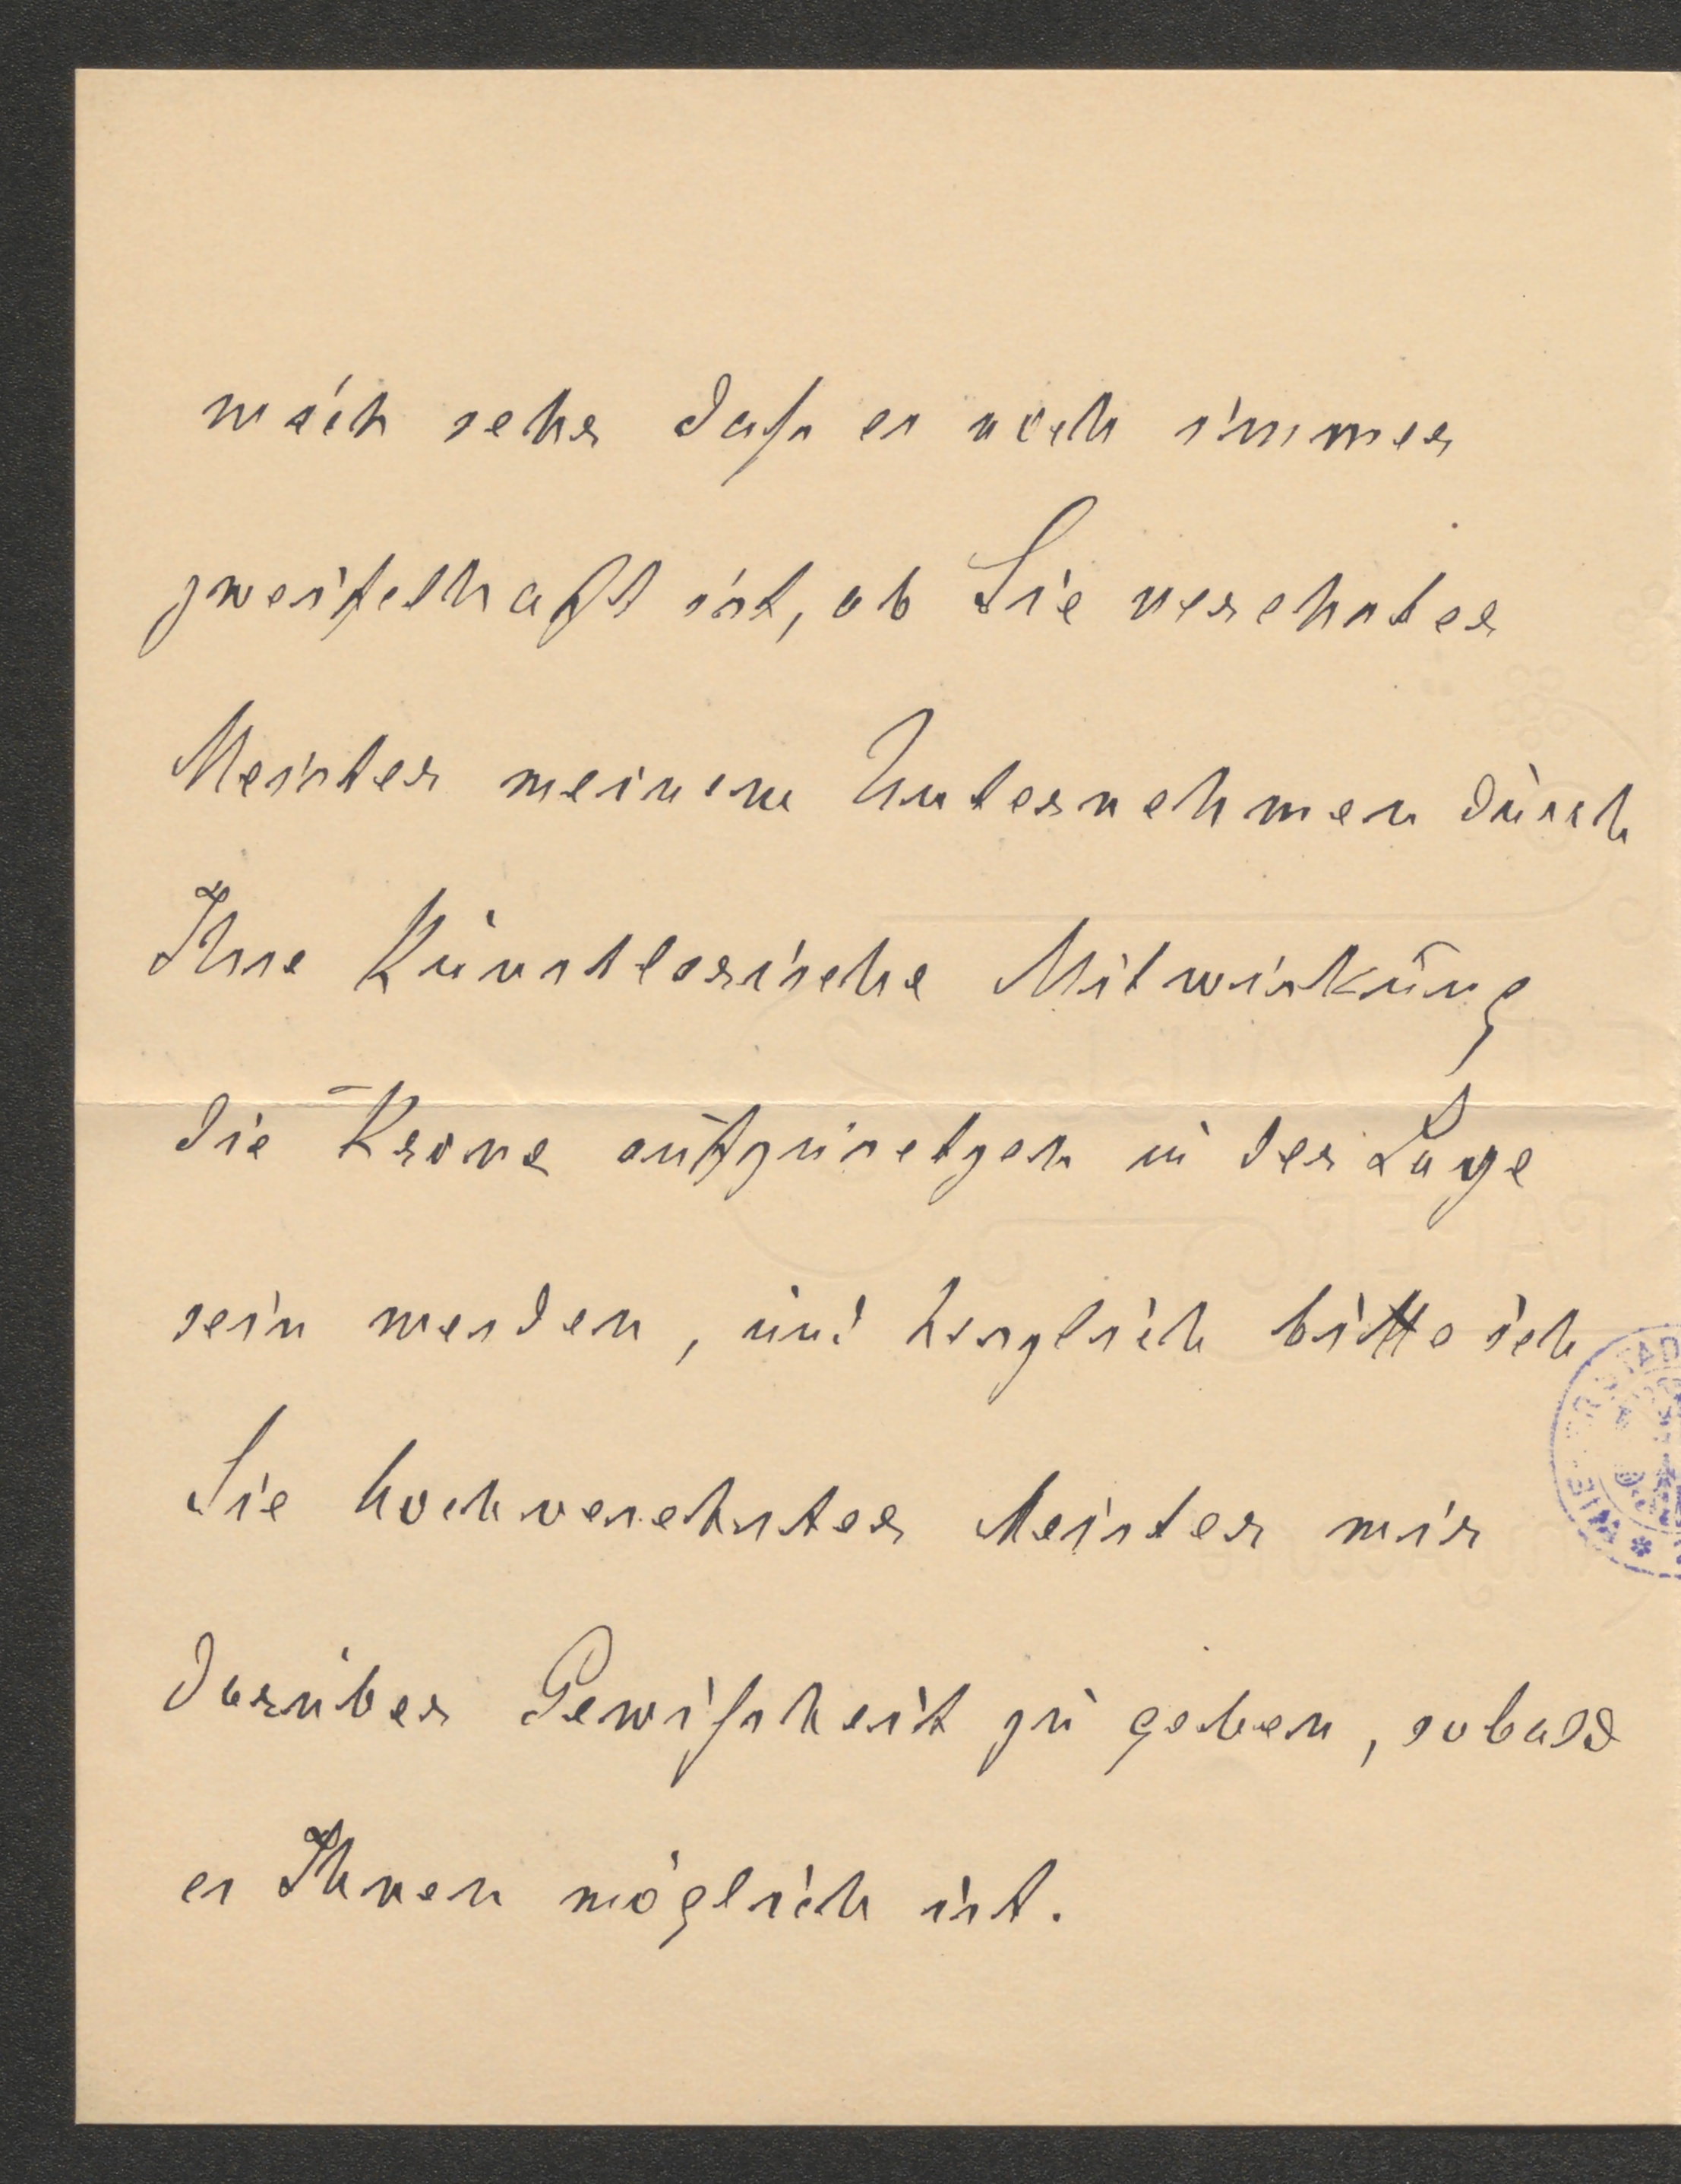 mich sehr daß es noch immer
zweifelhaft ist, ob Sie verehrter
Meister meinem Unternehmen durch
Ihre Künstlerische Mitwirkung
die Krone aufzusetzen in der Lage
sein werden, und herzlich bitte ich
Sie hochverehrter Meister mir
darüber Gewißheit zu geben, sobald
es Ihnen möglich ist.